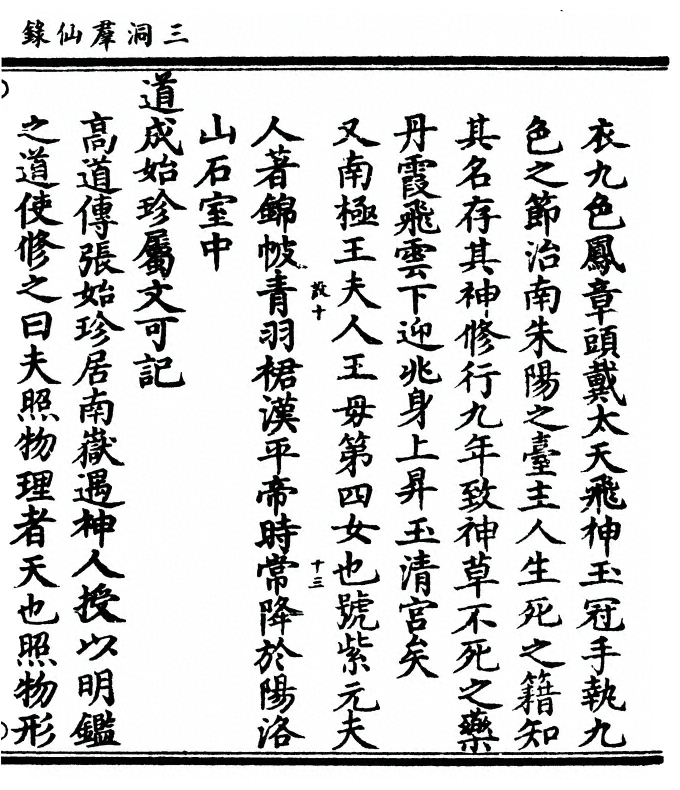 三洞羣仙錄
衣九色鳳章頭戴太天飛神玉冠手執九
色之節治南朱陽之臺主人生死之籍知
其名存其神修行九年致神草不死之藥
丹霞飛雲下迎兆身上昇玉清宮矣
又南極王夫人王母第四女也號紫元夫
散十
十三
人著錦帔青羽裙漢平帝時常降於陽洛
山石室中
道成始珍屬文可記
高道傳張始珍居南嶽遇神人授以明鑑
之道使修之曰夫照物理者天也照物形